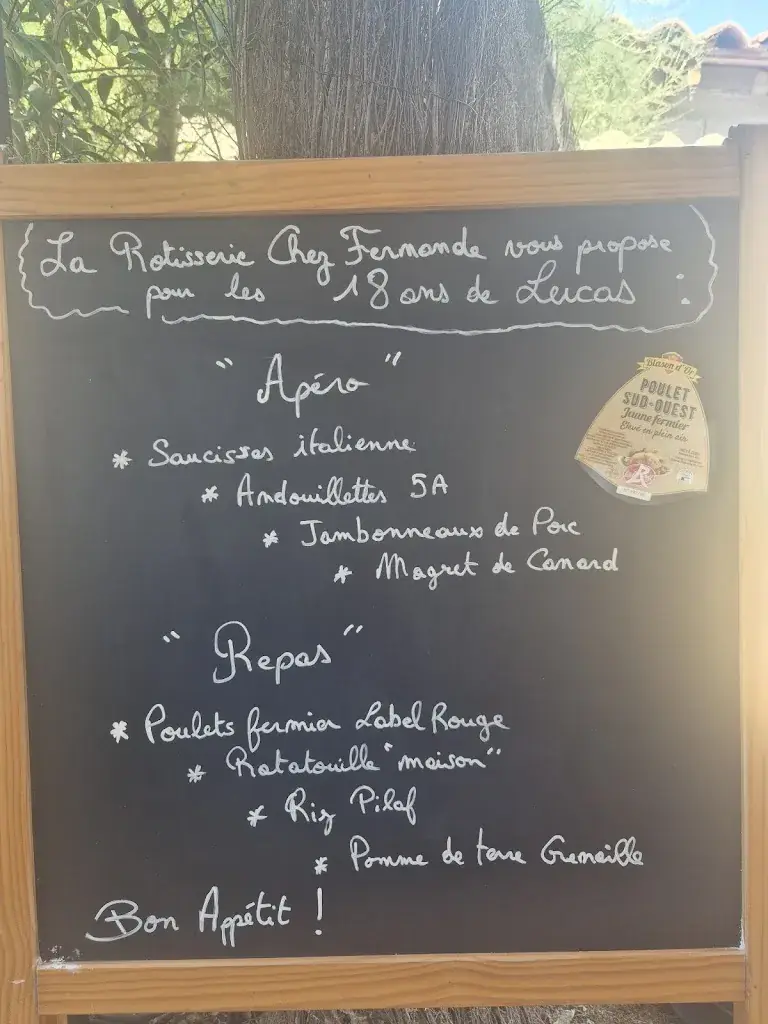 La Rotisserie Chez Fernande vous propose
pour les 18 ans de Lucas :
" Apéro "
* Saucisses italienne
* Andouillettes 5A
* Jambonneaux de Porc
* Magret de Canard
Blason d'Or
POULET
SUD-OUEST
Jaune fermier
Élevé en plein air
" Repas "
* Poulets fermier Label Rouge
* Ratatouille "maison"
* Riz Pilaf
* Pomme de terre Grenaille
Bon Appétit !